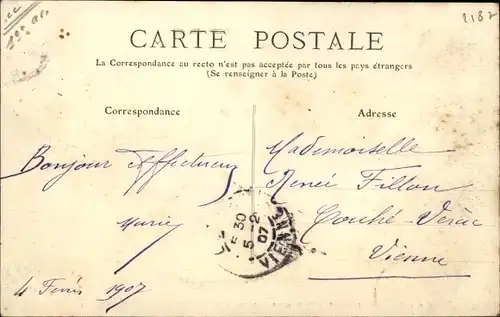 2187
CARTE POSTALE
La Correspondance au recto n'est pas acceptée par tous les pays étrangers
(Se renseigner à la Poste)
Correspondance
Adresse
Bonjour Affectueux
Marie
4 1907
Mademoiselle
Renée Fillon
Couhé-Vérac
Vienne
5 30
5-2
07
VIENNE